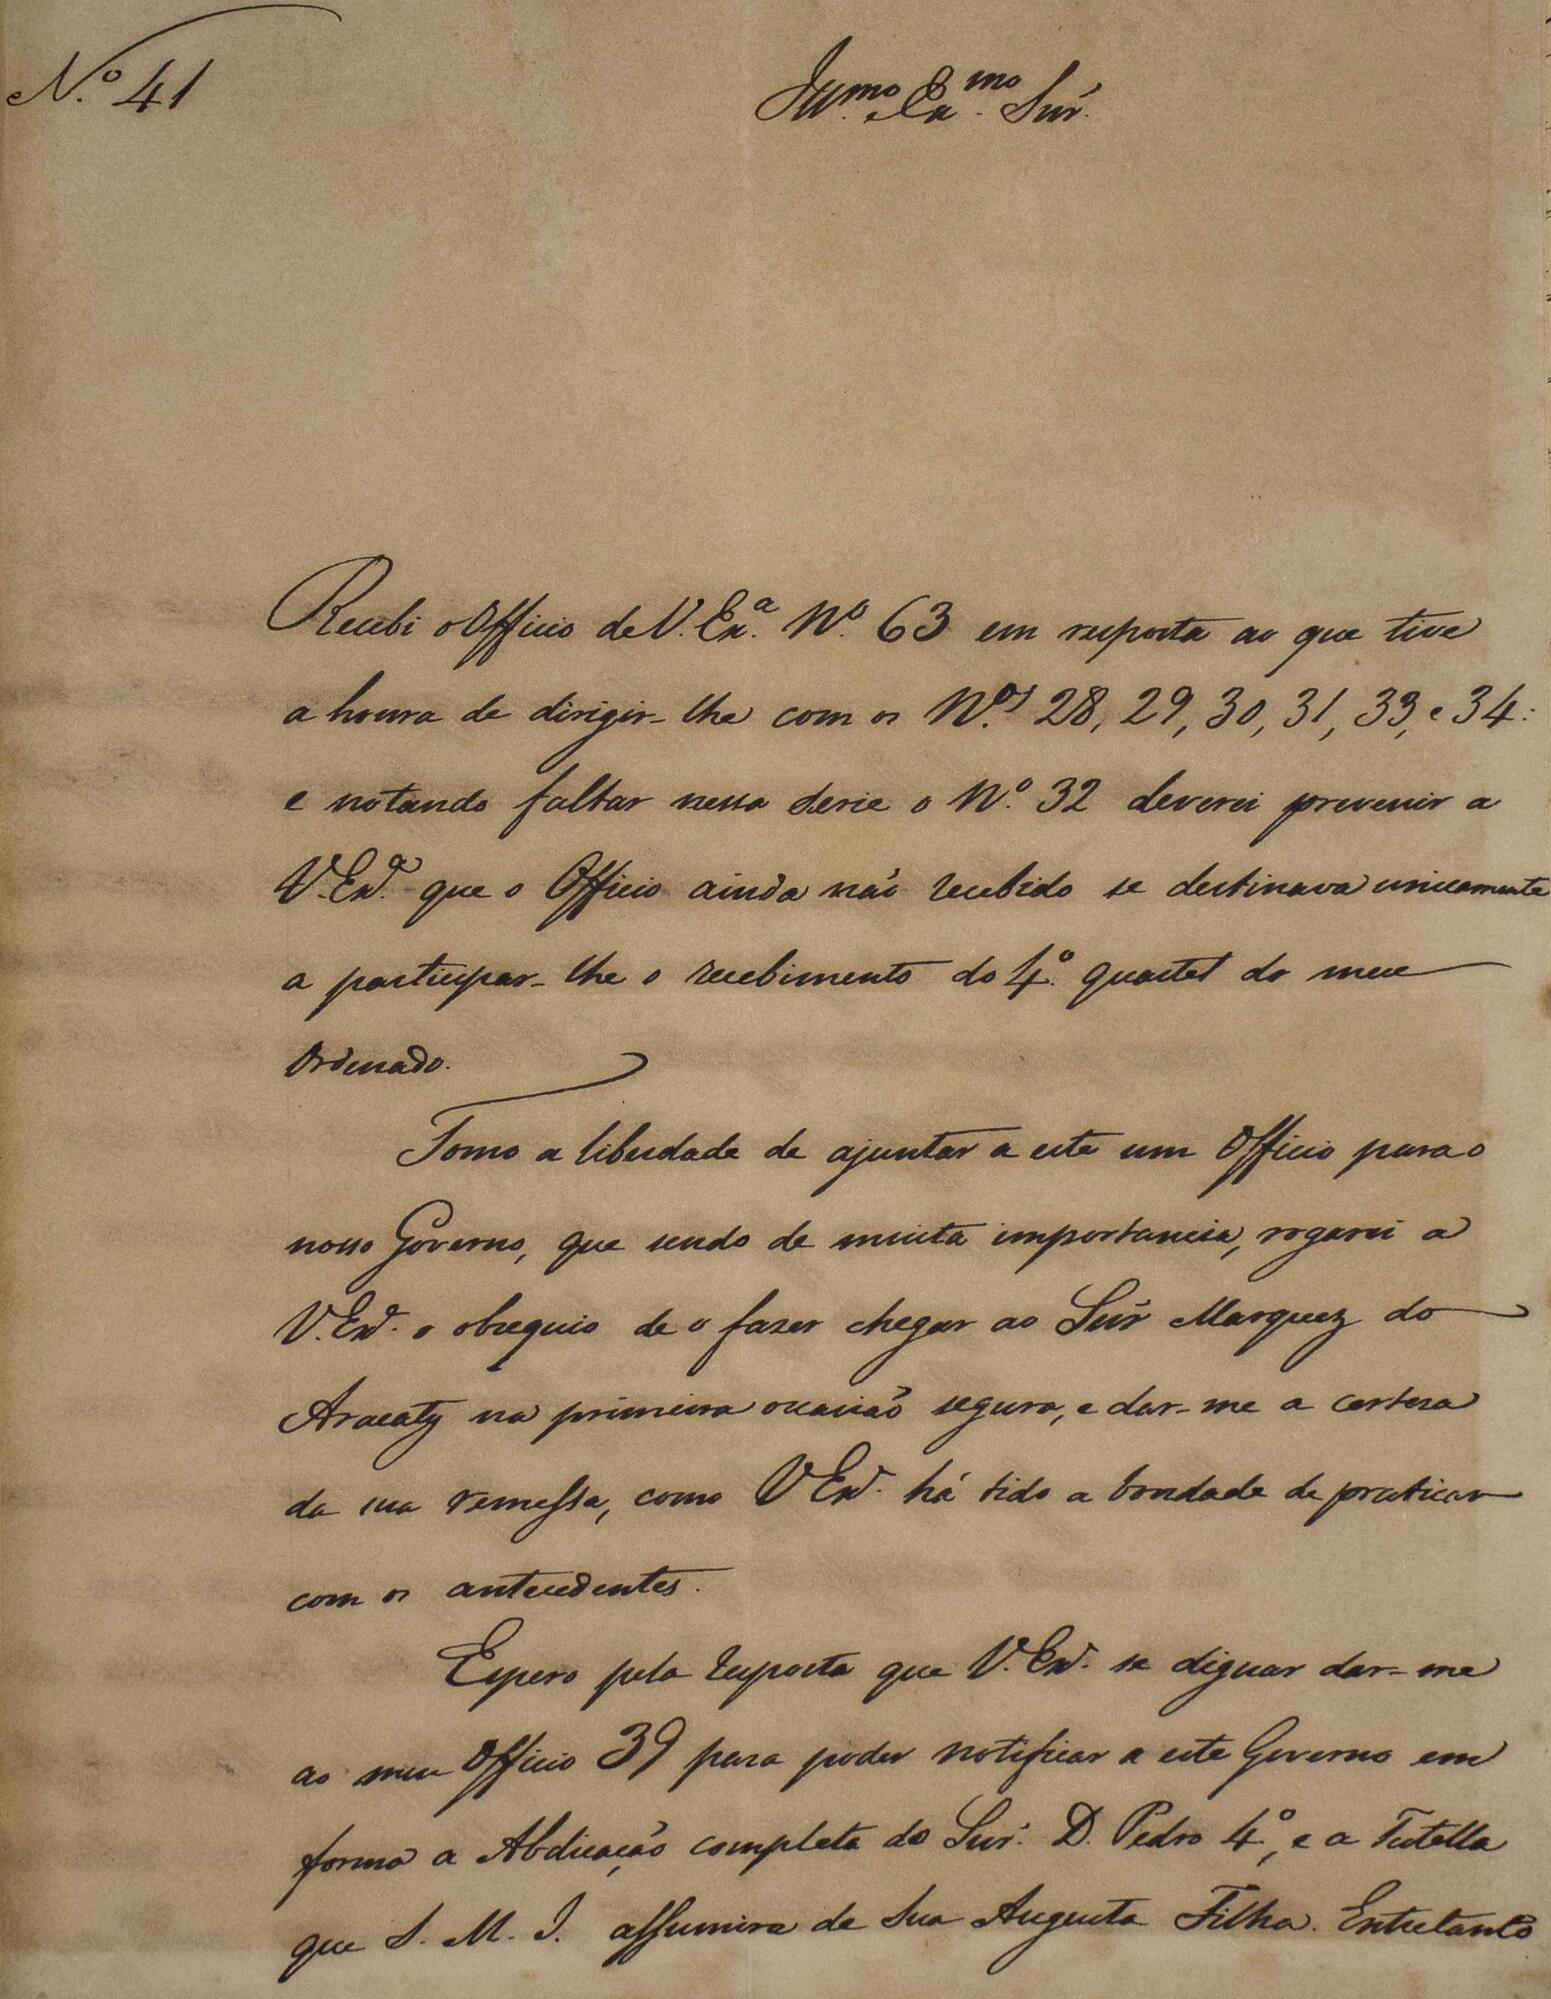 N.º 41
Ill.mo e Ex.mo Snr.
Recebi o Officio de V. Ex.ª N.º 63 em resposta ao que tive
a honra de dirigir-lhe com os N.os 28, 29, 30, 31, 33, e 34:
e notando faltar nessa serie o N.º 32 deverei prevenir a
V. Ex.ª que o Officio ainda não recebido se destinava unicamente
a participar-lhe o recebimento do 4.º quartel do meu
Ordenado.
Tomo a liberdade de ajuntar a este um Officio para o
nosso Governo, que sendo de muita importancia, rogarei a
V. Ex.ª o obsequio de o fazer chegar ao Snr Marquez do
Aracaty na primeira occasião segura, e dar-me a certeza
da sua remessa, como V. Ex.ª há tido a bondade de praticar
com os antecedentes.
Espero pela resposta que V. Ex.ª se dignar dar-me
ao meu Officio 39 para poder notificar a este Governo em
forma a Abdicação completa do Snr. D. Pedro 4.º, e a Tutella
que S. M. I. assumira de Sua Augusta Filha. Entretanto